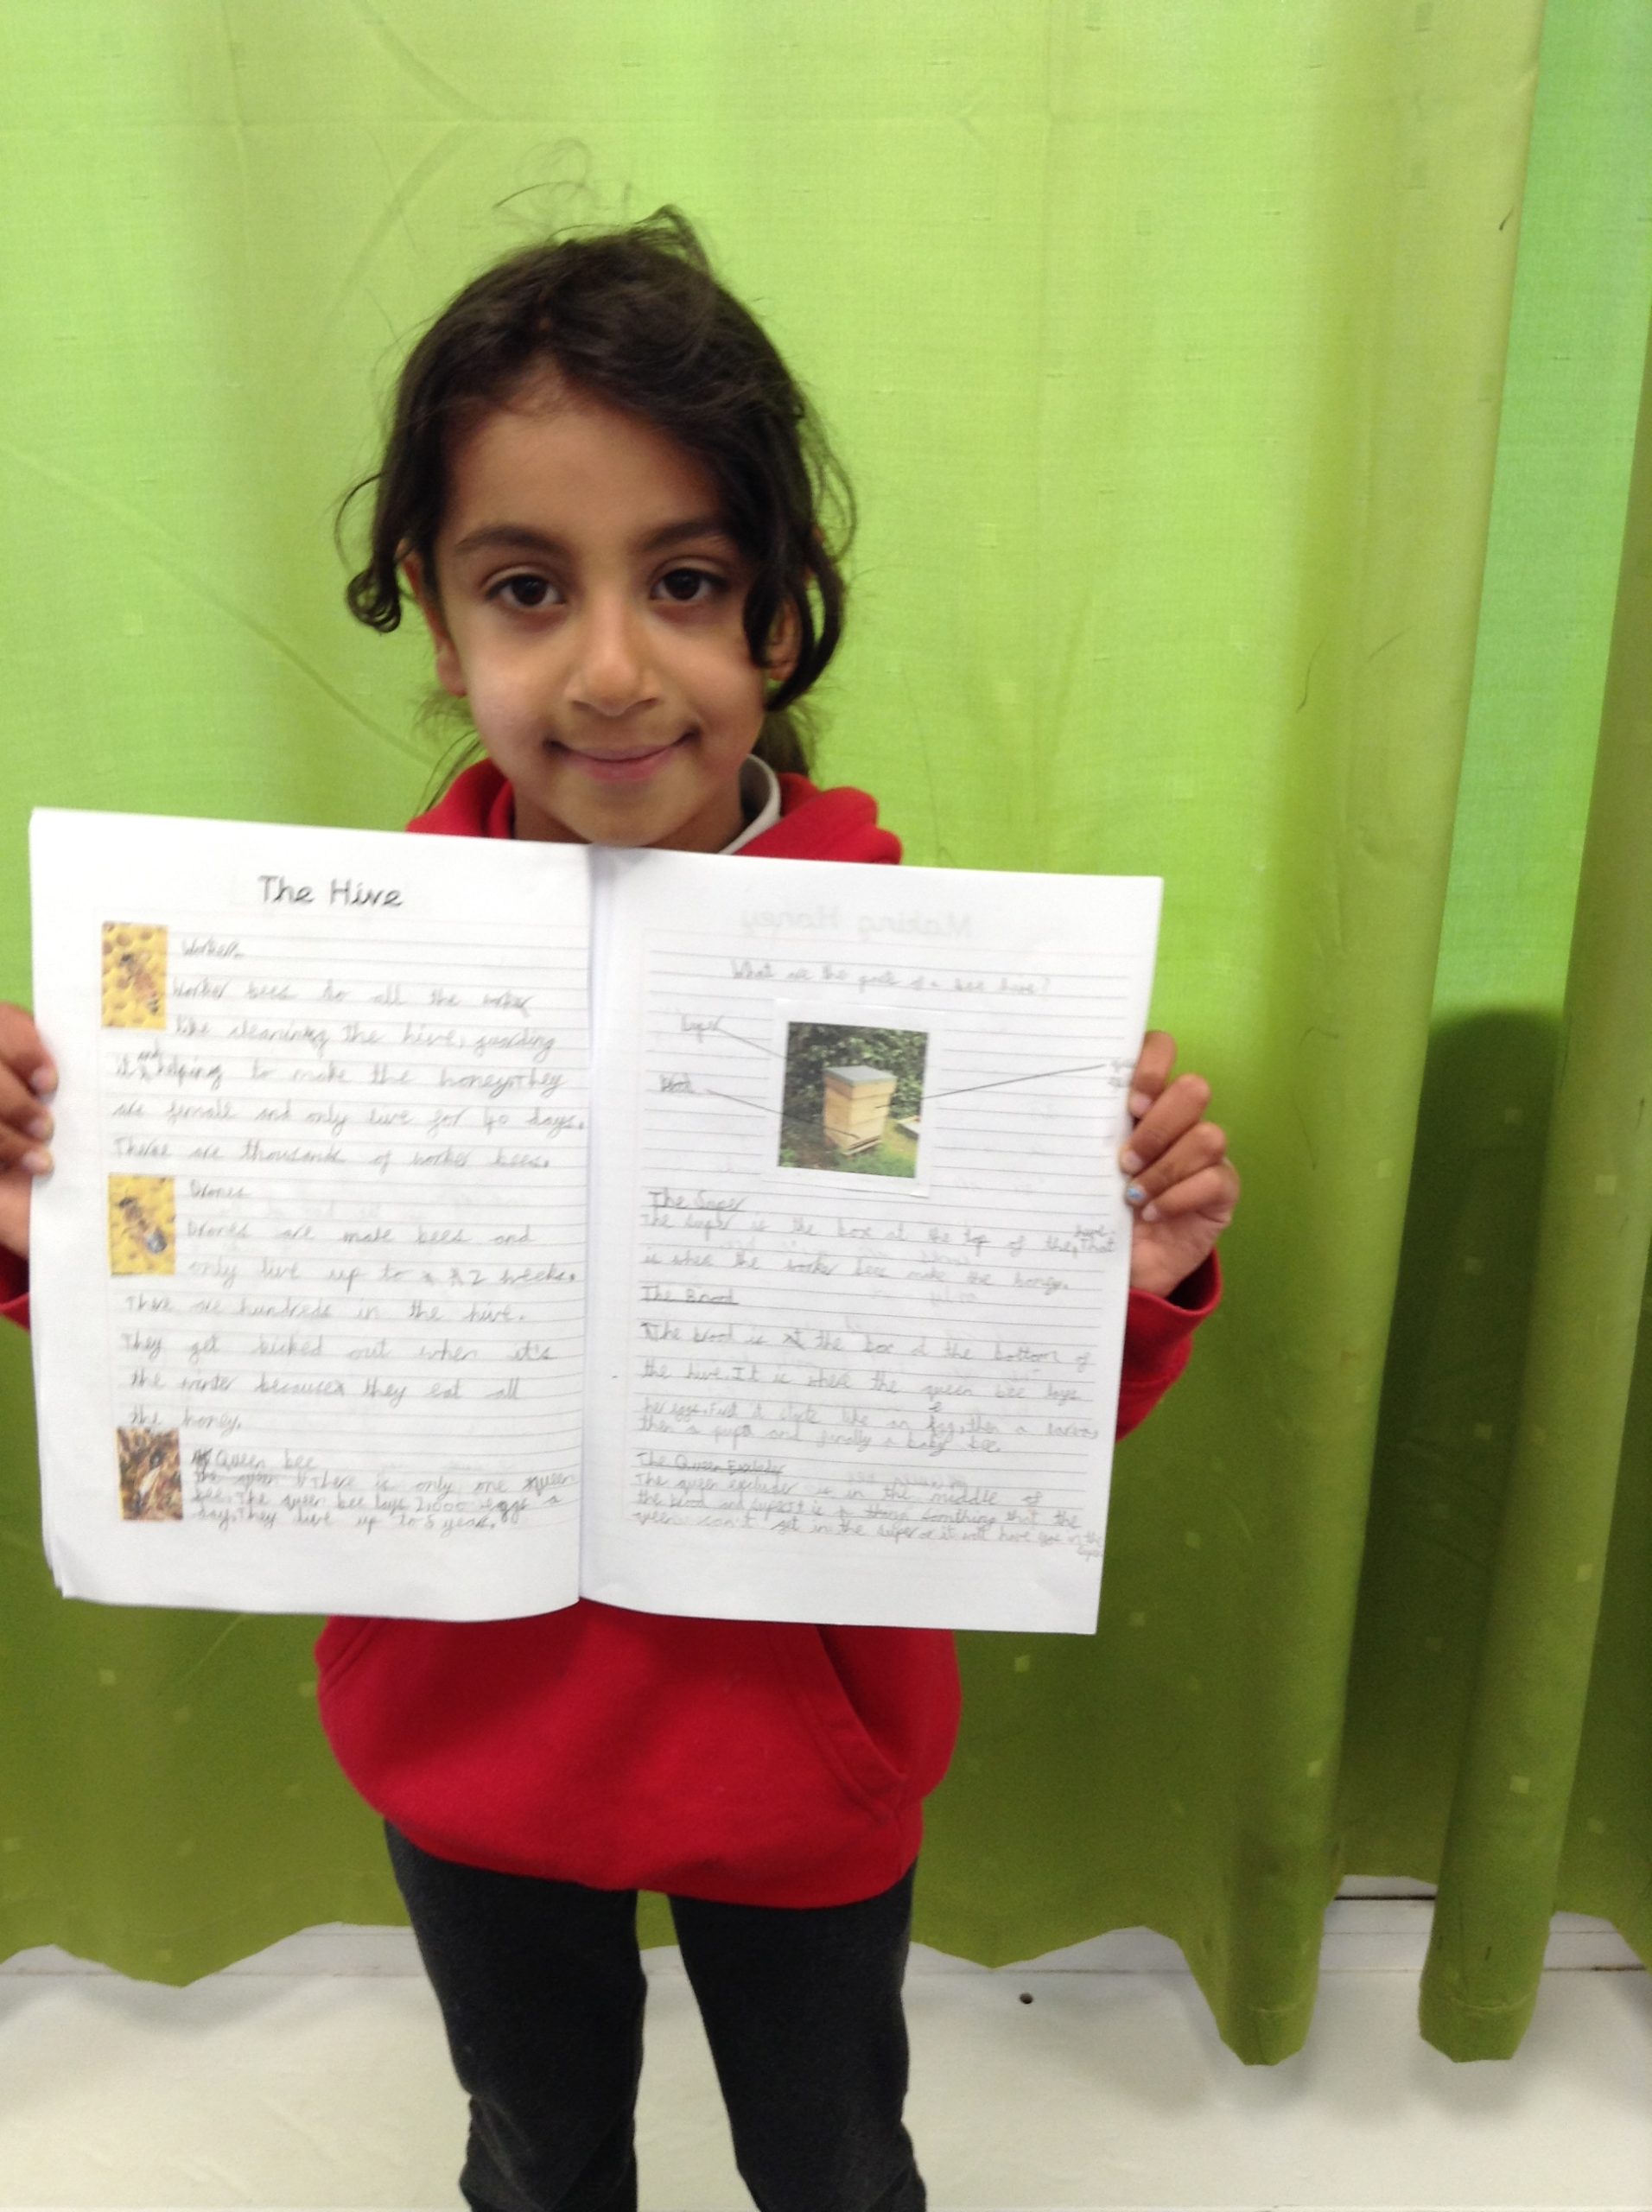 The Hive
Workers
Worker bees do all the work
like cleaning the hive, guarding
it and helping to make the honey. They
are female and only live for 40 days.
There are thousands of worker bees.
Drones
Drones are male bees and
only live up to 2 weeks.
There are hundreds in the hive.
They get kicked out when it's
the winter because they eat all
the honey.
Queen bee
There is only one queen
bee. The queen bee lays 2,000 eggs a
day. They live up to 5 years.
Making Honey
What are the parts of a bee hive?
Super
Brood
The Super
The super is the box at the top of the hive. That
is where the worker bees make the honey.
The Brood
The brood is the box at the bottom of
the hive. It is where the queen bee lays
her eggs. First it starts like an egg, then a larva,
then a pupa and finally a baby bee.
The Queen Excluder
The queen excluder is in the middle of
the brood and super. It is a thing somthing that the
queen can't get in the super or it will have eggs in the
super